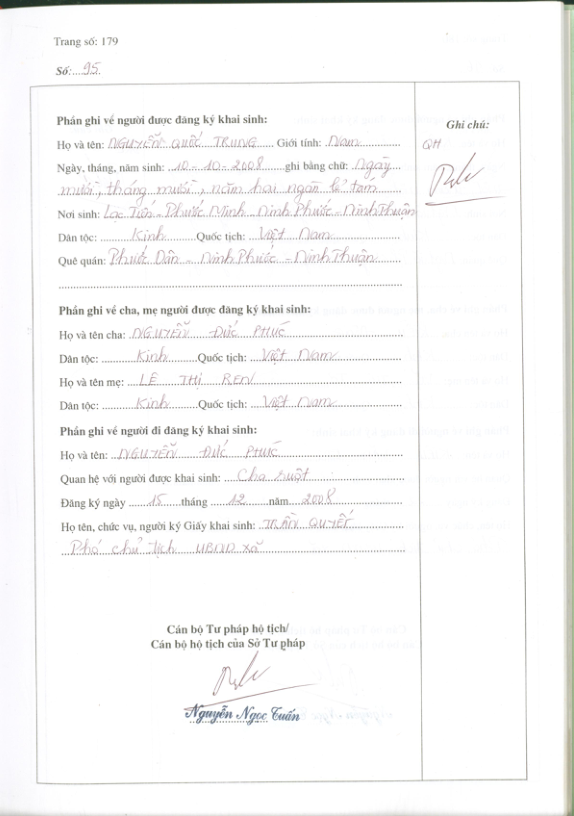 Trang số: 179
Số: 95
Phần ghi về người được đăng ký khai sinh:
Ghi chú:
Họ và tên: NGUYỄN QUỐC TRUNG Giới tính: Nam
QH
Ngày, tháng, năm sinh: 10-10-2008 ghi bằng chữ: Ngày
mười, tháng mười, năm hai ngàn lẻ tám
Nơi sinh: Lạc Tiến - Phước Minh - Ninh Phước - Ninh Thuận
Dân tộc: Kinh Quốc tịch: Việt Nam
Quê quán: Phước Dân - Ninh Phước - Ninh Thuận
Phần ghi về cha, mẹ người được đăng ký khai sinh:
Họ và tên cha: NGUYỄN ĐỨC PHÚC
Dân tộc: Kinh Quốc tịch: Việt Nam
Họ và tên mẹ: LÊ THỊ REN
Dân tộc: Kinh Quốc tịch: Việt Nam
Phần ghi về người đi đăng ký khai sinh:
Họ và tên: NGUYỄN ĐỨC PHÚC
Quan hệ với người được khai sinh: Cha ruột
Đăng ký ngày 15 tháng 12 năm 2008
Họ tên, chức vụ, người ký Giấy khai sinh: TRẦN QUYẾT
Phó chủ tịch UBND xã
Cán bộ Tư pháp hộ tịch/
Cán bộ hộ tịch của Sở Tư pháp
Nguyễn Ngọc Tuấn